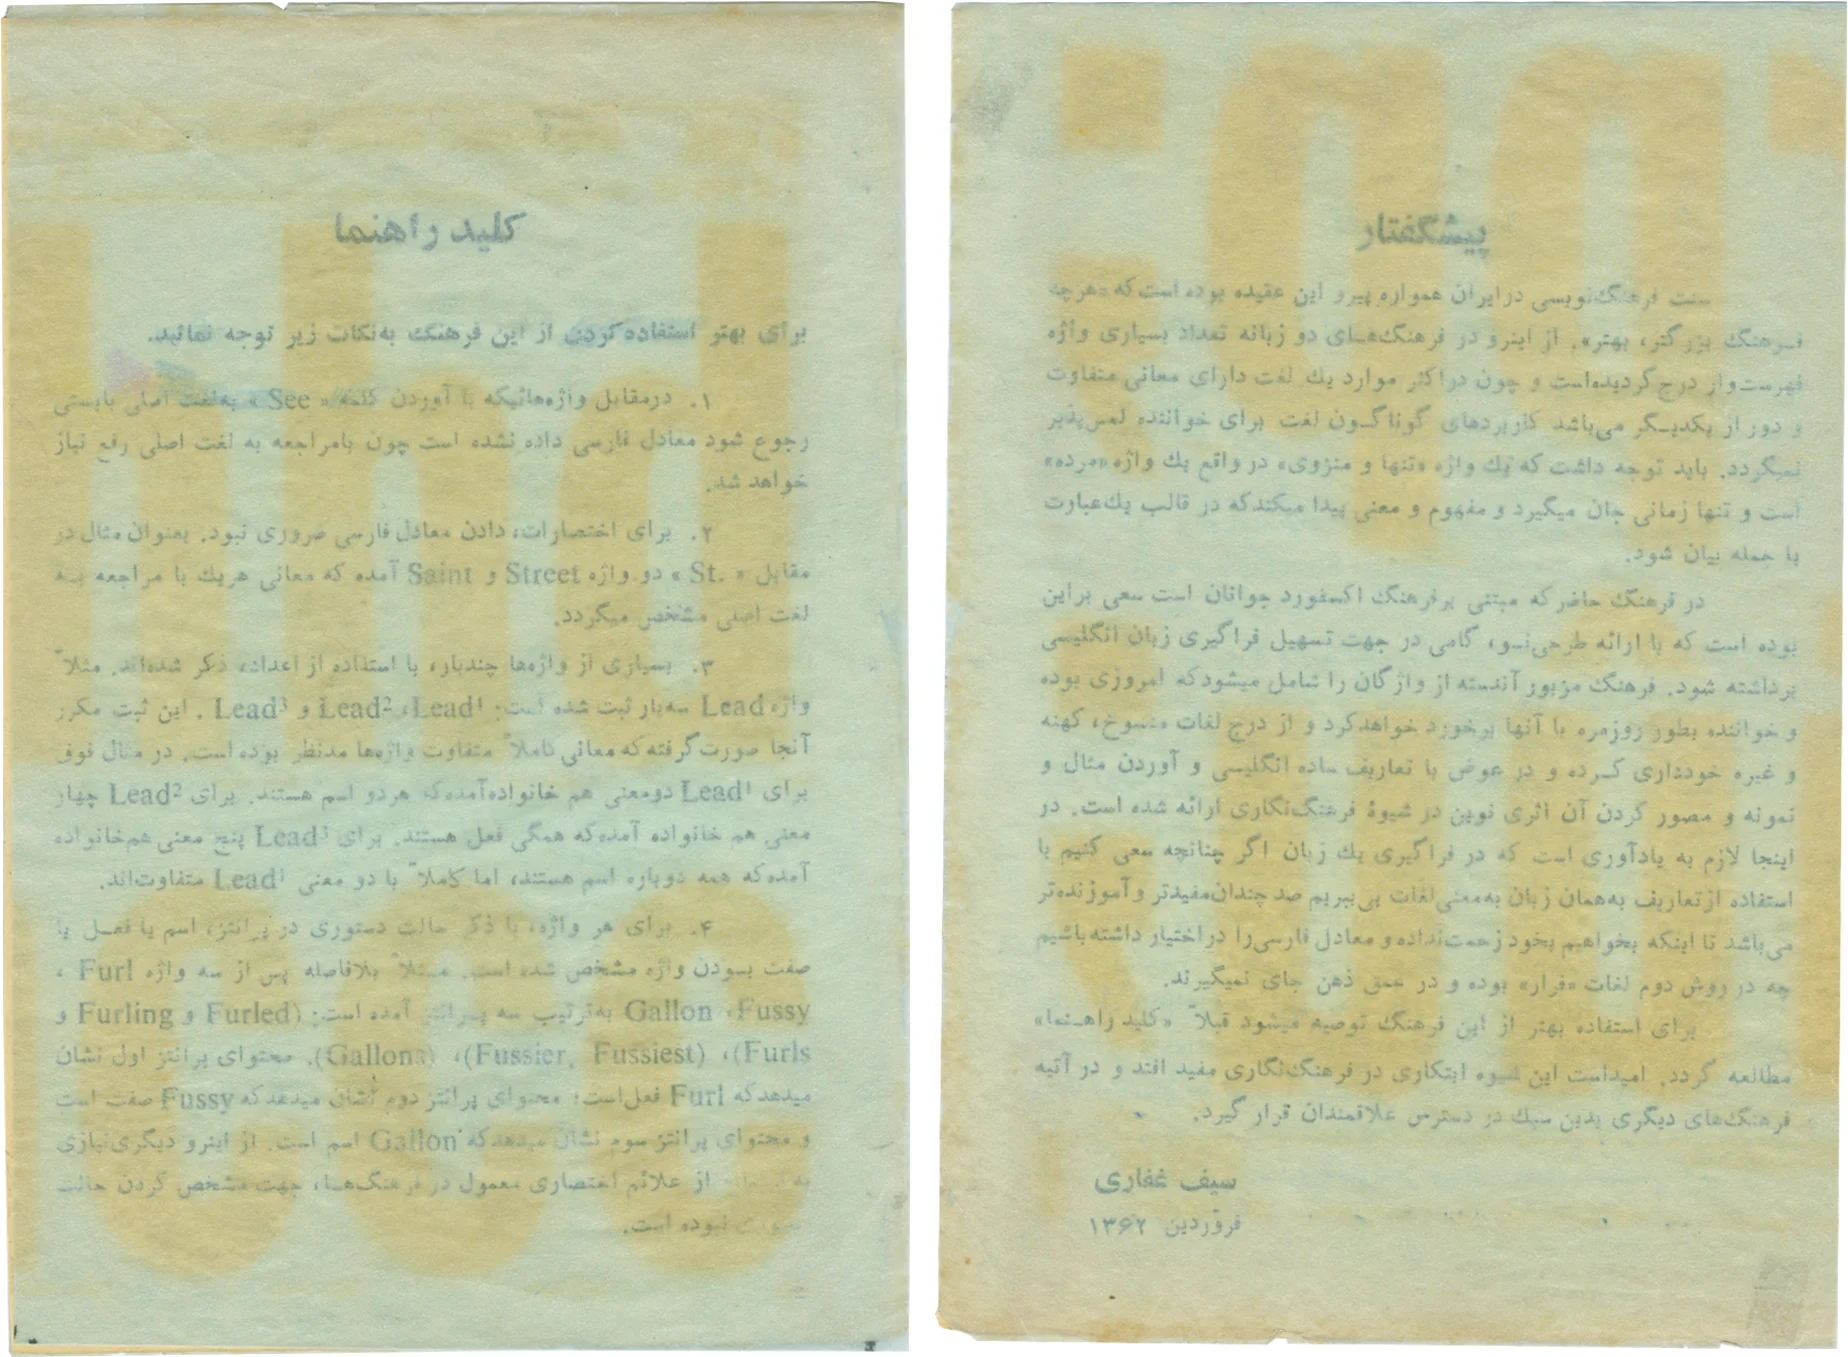 پیشگفتار
سنت فرهنگ‌نویسی در ایران همواره پیرو این عقیده بوده است که «هر چه
فرهنگ بزرگتر، بهتر». از اینرو در فرهنگ‌های دو زبانه تعداد بسیاری واژه
فهرست‌وار درج گردیده‌است و چون در اکثر موارد یك لغت دارای معانی متفاوت
و دور از یکدیگر می‌باشد کاربردهای گوناگون لغت برای خواننده لمس‌پذیر
نمیگردد. باید توجه داشت که یك واژه «تنها و منزوی» در واقع یك واژه «مرده»
است و تنها زمانی جان میگیرد و مفهوم و معنی پیدا میکند که در قالب یك عبارت
یا جمله بیان شود.
در فرهنگ حاضر که مبتنی بر فرهنگ اکسفورد جوانان است سعی براین
بوده است که با ارائه طرحی‌نو، گامی در جهت تسهیل فراگیری زبان انگلیسی
برداشته شود. فرهنگ مزبور آندسته از واژگان را شامل میشود که امروزی بوده
و خواننده بطور روزمره با آنها برخورد خواهد کرد و از درج لغات منسوخ، کهنه
و غیره خودداری کرده و در عوض با تعاریف ساده انگلیسی و آوردن مثال و
نمونه و مصور کردن آن اثری نوین در شیوهٔ فرهنگ‌نگاری ارائه شده است. در
اینجا لازم به یادآوری است که در فراگیری یك زبان اگر چنانچه سعی کنیم با
استفاده از تعاریف به‌همان زبان به‌معنی لغات پی‌ببریم صد چندان مفیدتر و آموزنده‌تر
می‌باشد تا اینکه بخواهیم بخود زحمت نداده و معادل فارسی را در اختیار داشته باشیم
چه در روش دوم لغات «فرار» بوده و در عمق ذهن جای نمیگیرند.
برای استفاده بهتر از این فرهنگ توصیه میشود قبلاً «کلید راهنما»
مطالعه گردد. امیداست این شیوه ابتکاری در فرهنگ‌نگاری مفید افتد و در آتیه
فرهنگ‌های دیگری بدین سبك در دسترس علاقمندان قرار گیرد.
سیف غفاری
فروردین ۱۳۶۲
کلید راهنما
برای بهتر استفاده کردن از این فرهنگ به‌نکات زیر توجه نمائید.
۱. در مقابل واژه‌هائیکه با آوردن کلمه «See» به‌لغت اصلی بایستی
رجوع شود معادل فارسی داده نشده است چون بامراجعه به لغت اصلی رفع نیاز
خواهد شد.
۲. برای اختصارات، دادن معادل فارسی ضروری نبود. بعنوان مثال در
مقابل «St.» دو واژه Street و Saint آمده که معانی هریك با مراجعه به
لغت اصلی مشخص میگردد.
۳. بسیاری از واژه‌ها چندبار، با استفاده از اعداد، ذکر شده‌اند. مثلاً
واژه Lead سه‌بار ثبت شده است: Lead¹، Lead² و Lead³. این ثبت مکرر
آنجا صورت گرفته که معانی کاملاً متفاوت واژه‌ها مدنظر بوده است. در مثال فوق
برای Lead¹ دومعنی هم خانواده‌آمده‌که هر دو اسم هستند. برای Lead² چهار
معنی هم خانواده آمده‌که همگی فعل هستند. برای Lead³ پنج معنی هم‌خانواده
آمده‌که همه دوباره اسم هستند، اما کاملاً با دو معنی Lead¹ متفاوت‌اند.
۴. برای هر واژه، با ذکر حالت دستوری در پرانتز، اسم یا فعل یا
صفت بودن واژه مشخص شده است. مثلاً بلافاصله پس از سه واژه Furl ،
Fussy، Gallon به‌ترتیب سه پرانتز آمده است: (Furled و Furling و
Furls)، (Fussier, Fussiest)، (Gallons). محتوای پرانتز اول نشان
میدهد که Furl فعل‌است؛ محتوای پرانتز دوم نشان میدهد که Fussy صفت است
و محتوای پرانتز سوم نشان میدهد که Gallon اسم است. از اینرو دیگری نیازی
از علائم اختصاری معمول در فرهنگ‌ها، جهت مشخص کردن حالت
نبوده است.